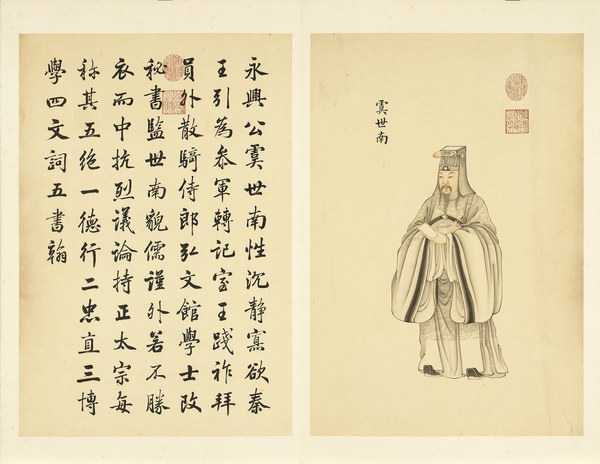 虞世南
永興公虞世南性沉靜寡欲秦
王引為叅軍轉記室王踐祚拜
員外散騎侍郎弘文館學士改
秘書監世南貌儒謹外若不勝
衣而中抗烈議論持正太宗每
称其五絕一德行二忠直三博
學四文詞五書翰